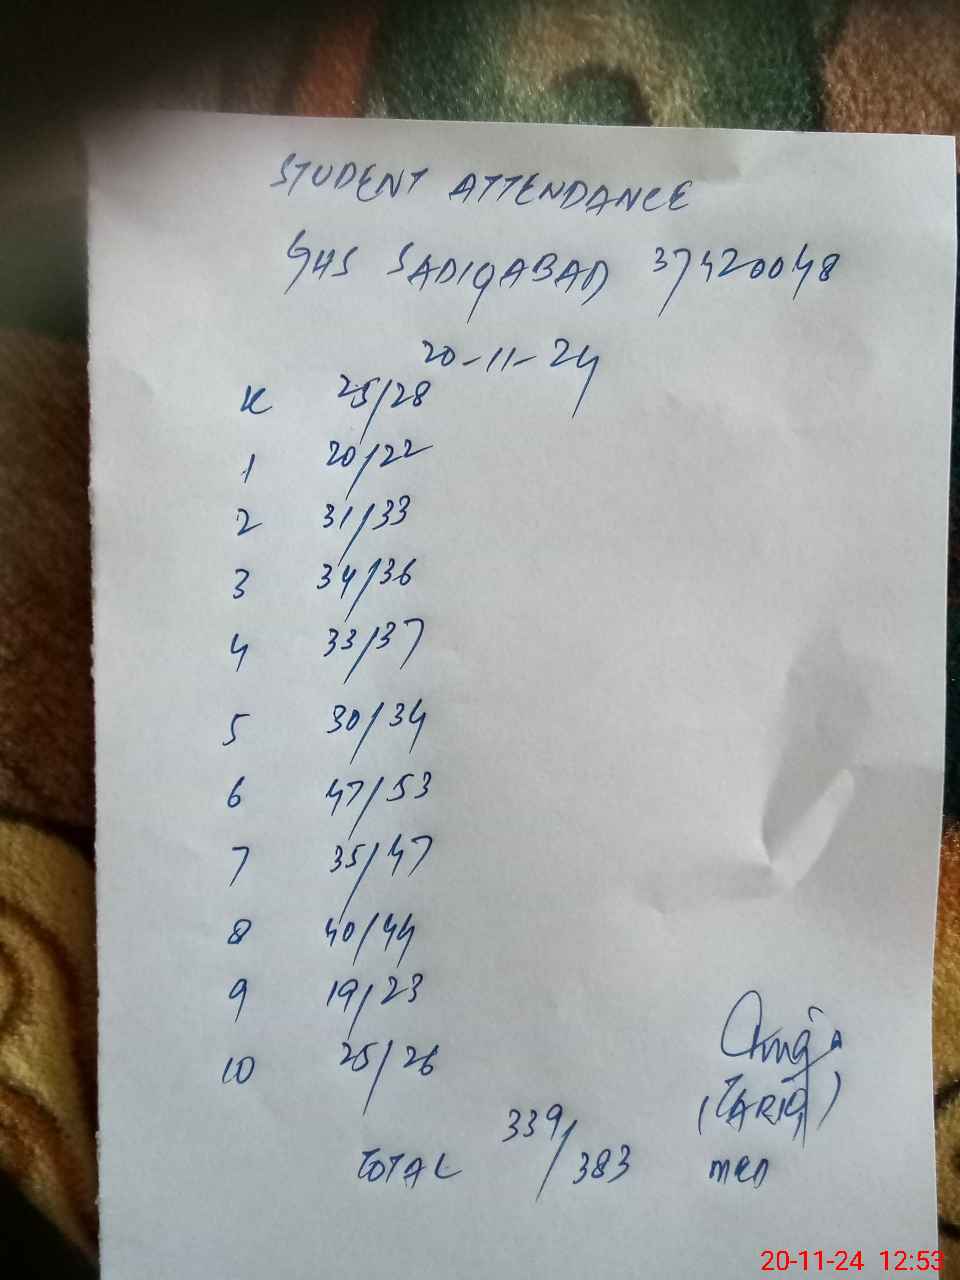 STUDENT ATTENDANCE
GHS SADIQABAD 37420048
20-11-24
K 25/28
1 20/22
2 31/33
3 34/36
4 33/37
5 30/34
6 47/53
7 35/47
8 40/44
9 19/23
10 25/26
TOTAL 339/383
(TARIQ)
20-11-24 12:53